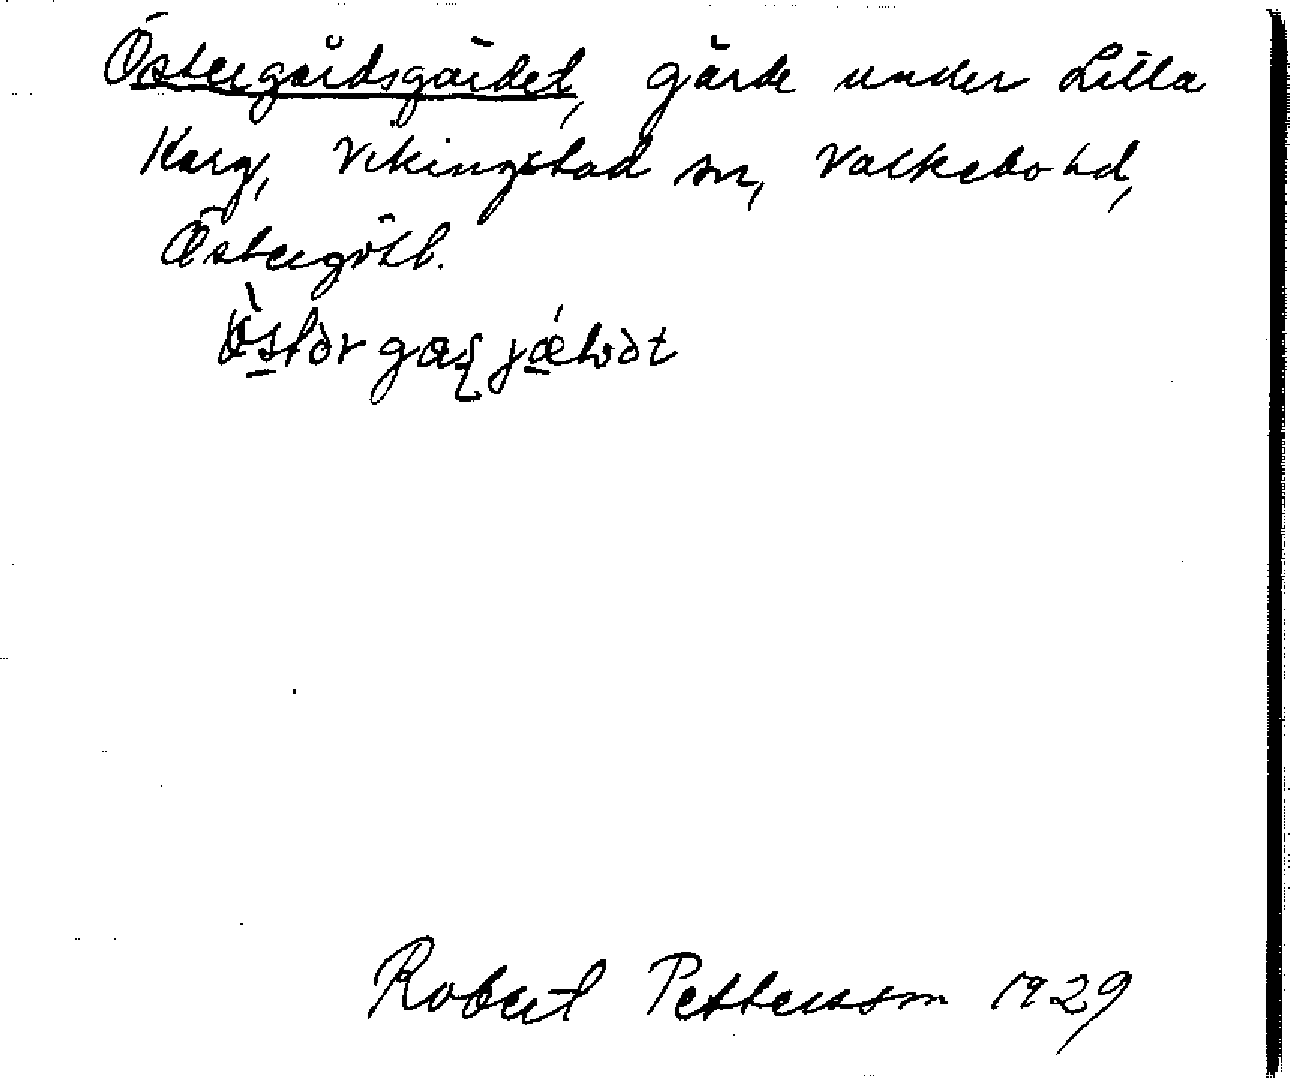 Östergårdsgärdet, gärde under Lilla
Karg, Vikingstad sn, Valkebo hd,
Östergötl.
Robert Pettersson 1929